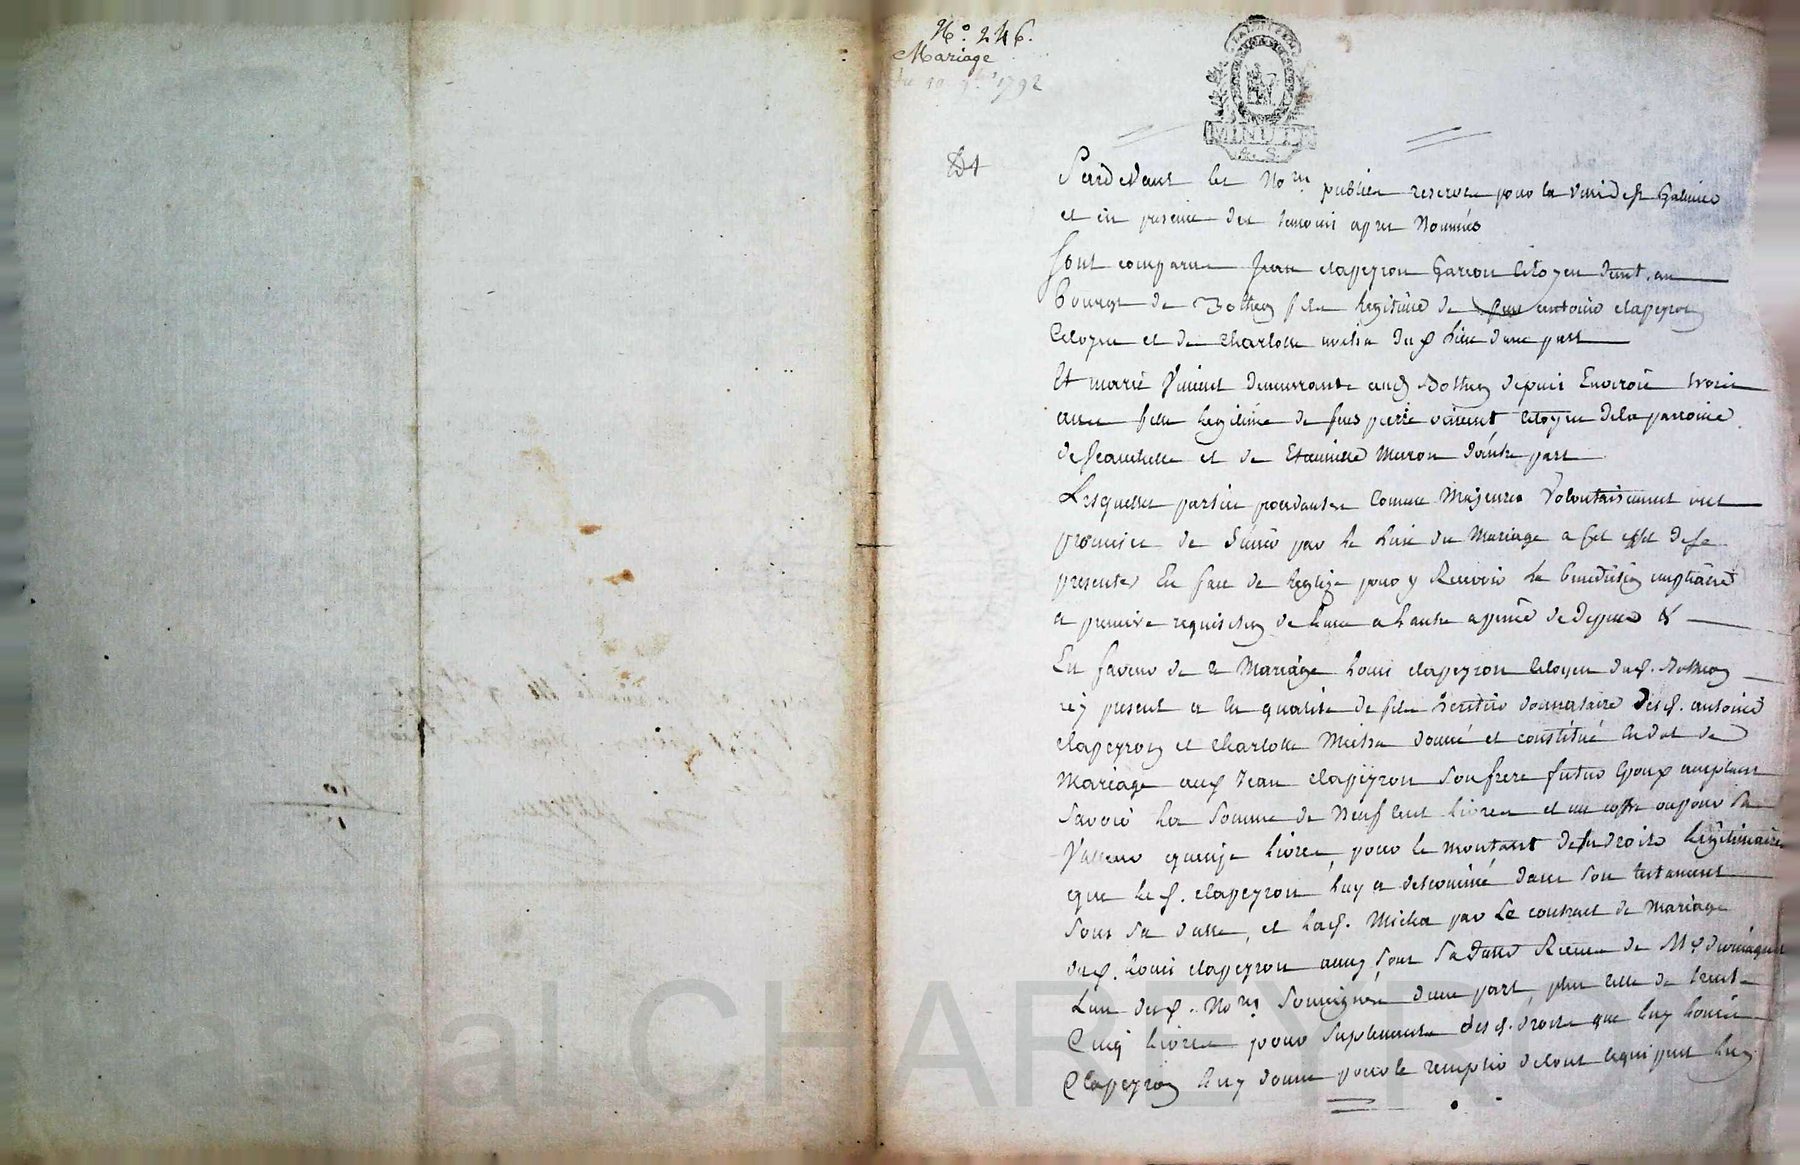 N.o 246.
Mariage
du 10 1792
MINUTE
Pardevant les No.res publics reservés pour la ville de St Galmier
et en presence des temoins apres Nommés
Sont comparus Jean clapeyron Garcon Citoyen demt. au
Bourg de Botheon fils legitime de antoine clapeyron
Citoyen et de Charlotte micha dud. lieu dune part
Et marie Vincent demeurante aud Botheon depuis Environ trois
ans fille legitime de feus pierre vincent Citoyen dela parroisse
de et de Etiennette Muron dautre part
Lesquelles parties procedantes Comme Majeures Volontairement ont
promis de Sunir par le lien du Mariage a cet effet de se
presenter En face de leglise pour y Recevoir la benediction nuptialle
a premiere requisition de lune a lautre a peine de depens &
En faveur de ce Mariage Louis clapeyron Citoyen dud. Botheon
icy present a la qualité de fils heritier donnataire desd. antoine
clapeyron et Charlotte Micha donné et constitué En dot de
Mariage aud Jean clapeyron son frere futur Epoux acceptant
savoir la Somme de Neuf Cent livres et un coffre ou pour sa
Valleur quinze livres, pour le montant de ses droits legitimaires
que led. clapeyron luy a determiné dans Son testament
Sous sa datte, et lad. Micha par Le contract de Mariage
dud. Louis clapeyron aussy sous sa datte Recu de Me
Lun desd. No.res Soussignés dune part, plus celle de trente
Cinq livres pour Suplements desd. droits que luy Louis
Clapeyron luy donne pour le remplir de tout ce qui peut luy
CHAREYRON